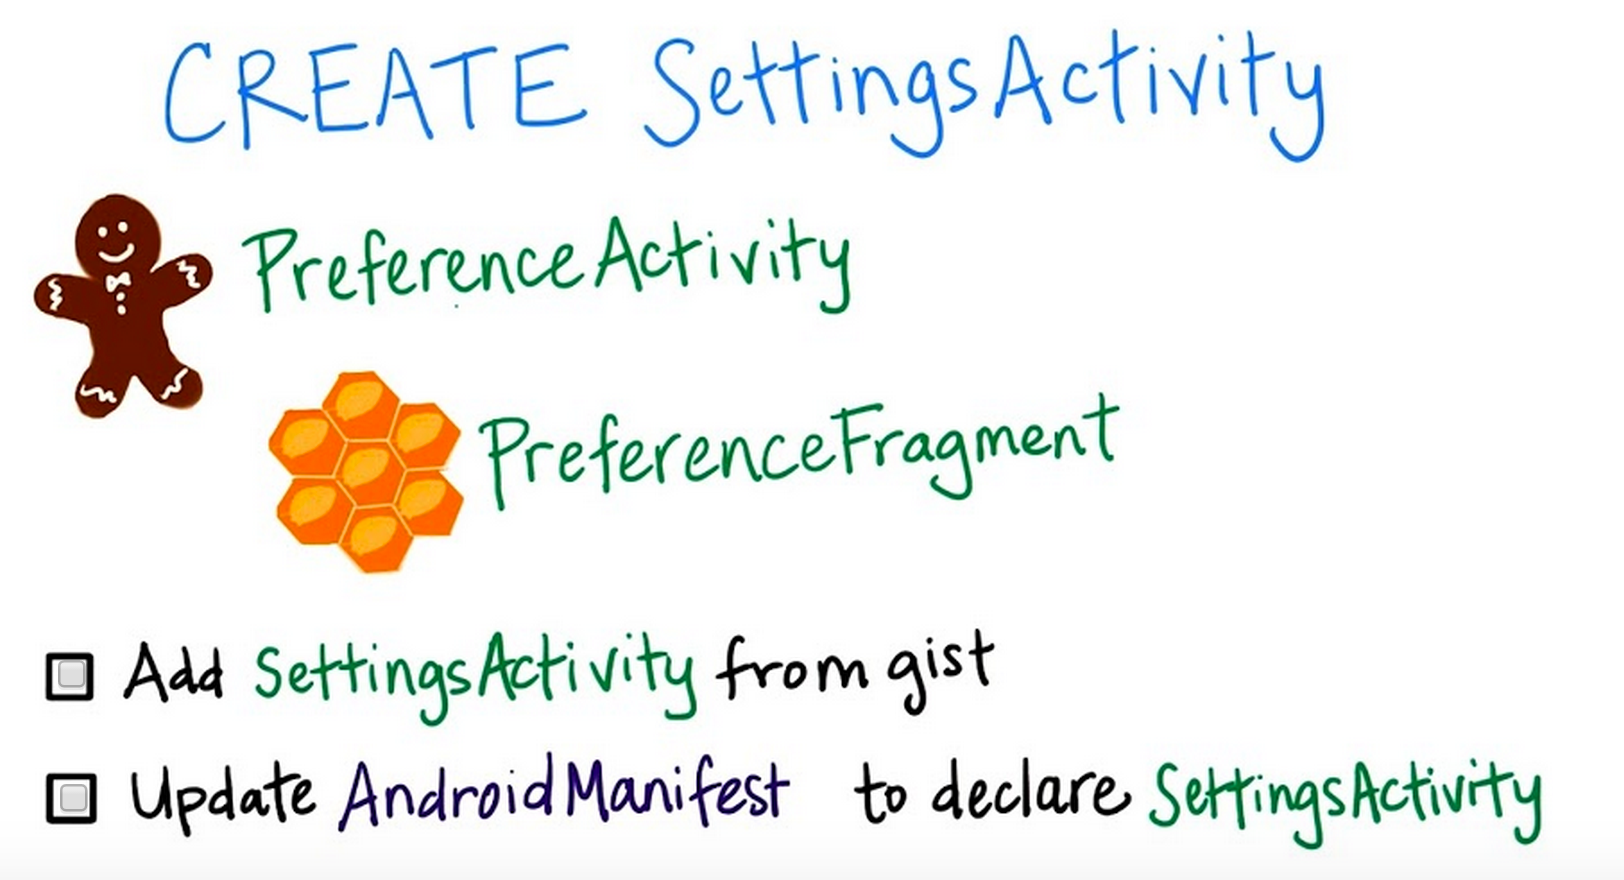 CREATE SettingsActivity
PreferenceActivity
PreferenceFragment
Add SettingsActivity from gist
Update AndroidManifest to declare SettingsActivity